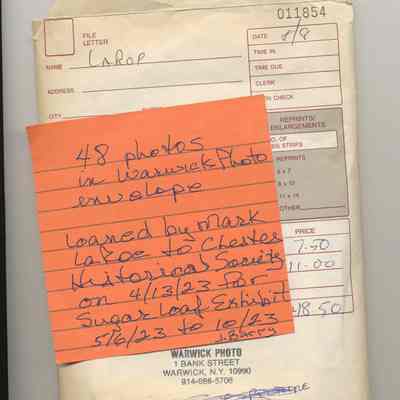 011854
FILE
LETTER
DATE 8/8
NAME LAROE
TIME IN
TIME DUE
ADDRESS
CLERK
CITY
CHECK
REPRINTS/
ENLARGEMENTS
NO. OF
STRIPS
REPRINTS
5 x 7
8 x 10
11 x 14
OTHER
PRICE
7.50
11.00
18.50
48 photos
in Warwick Photo
envelope
Loaned by Mark
LaRoe to Chester
Historical Society
on 4/13/23 for
Sugar Loaf Exhibit
5/6/23 to 10/23
J. Barry
WARWICK PHOTO
1 BANK STREET
WARWICK, N.Y. 10990
914-986-5706